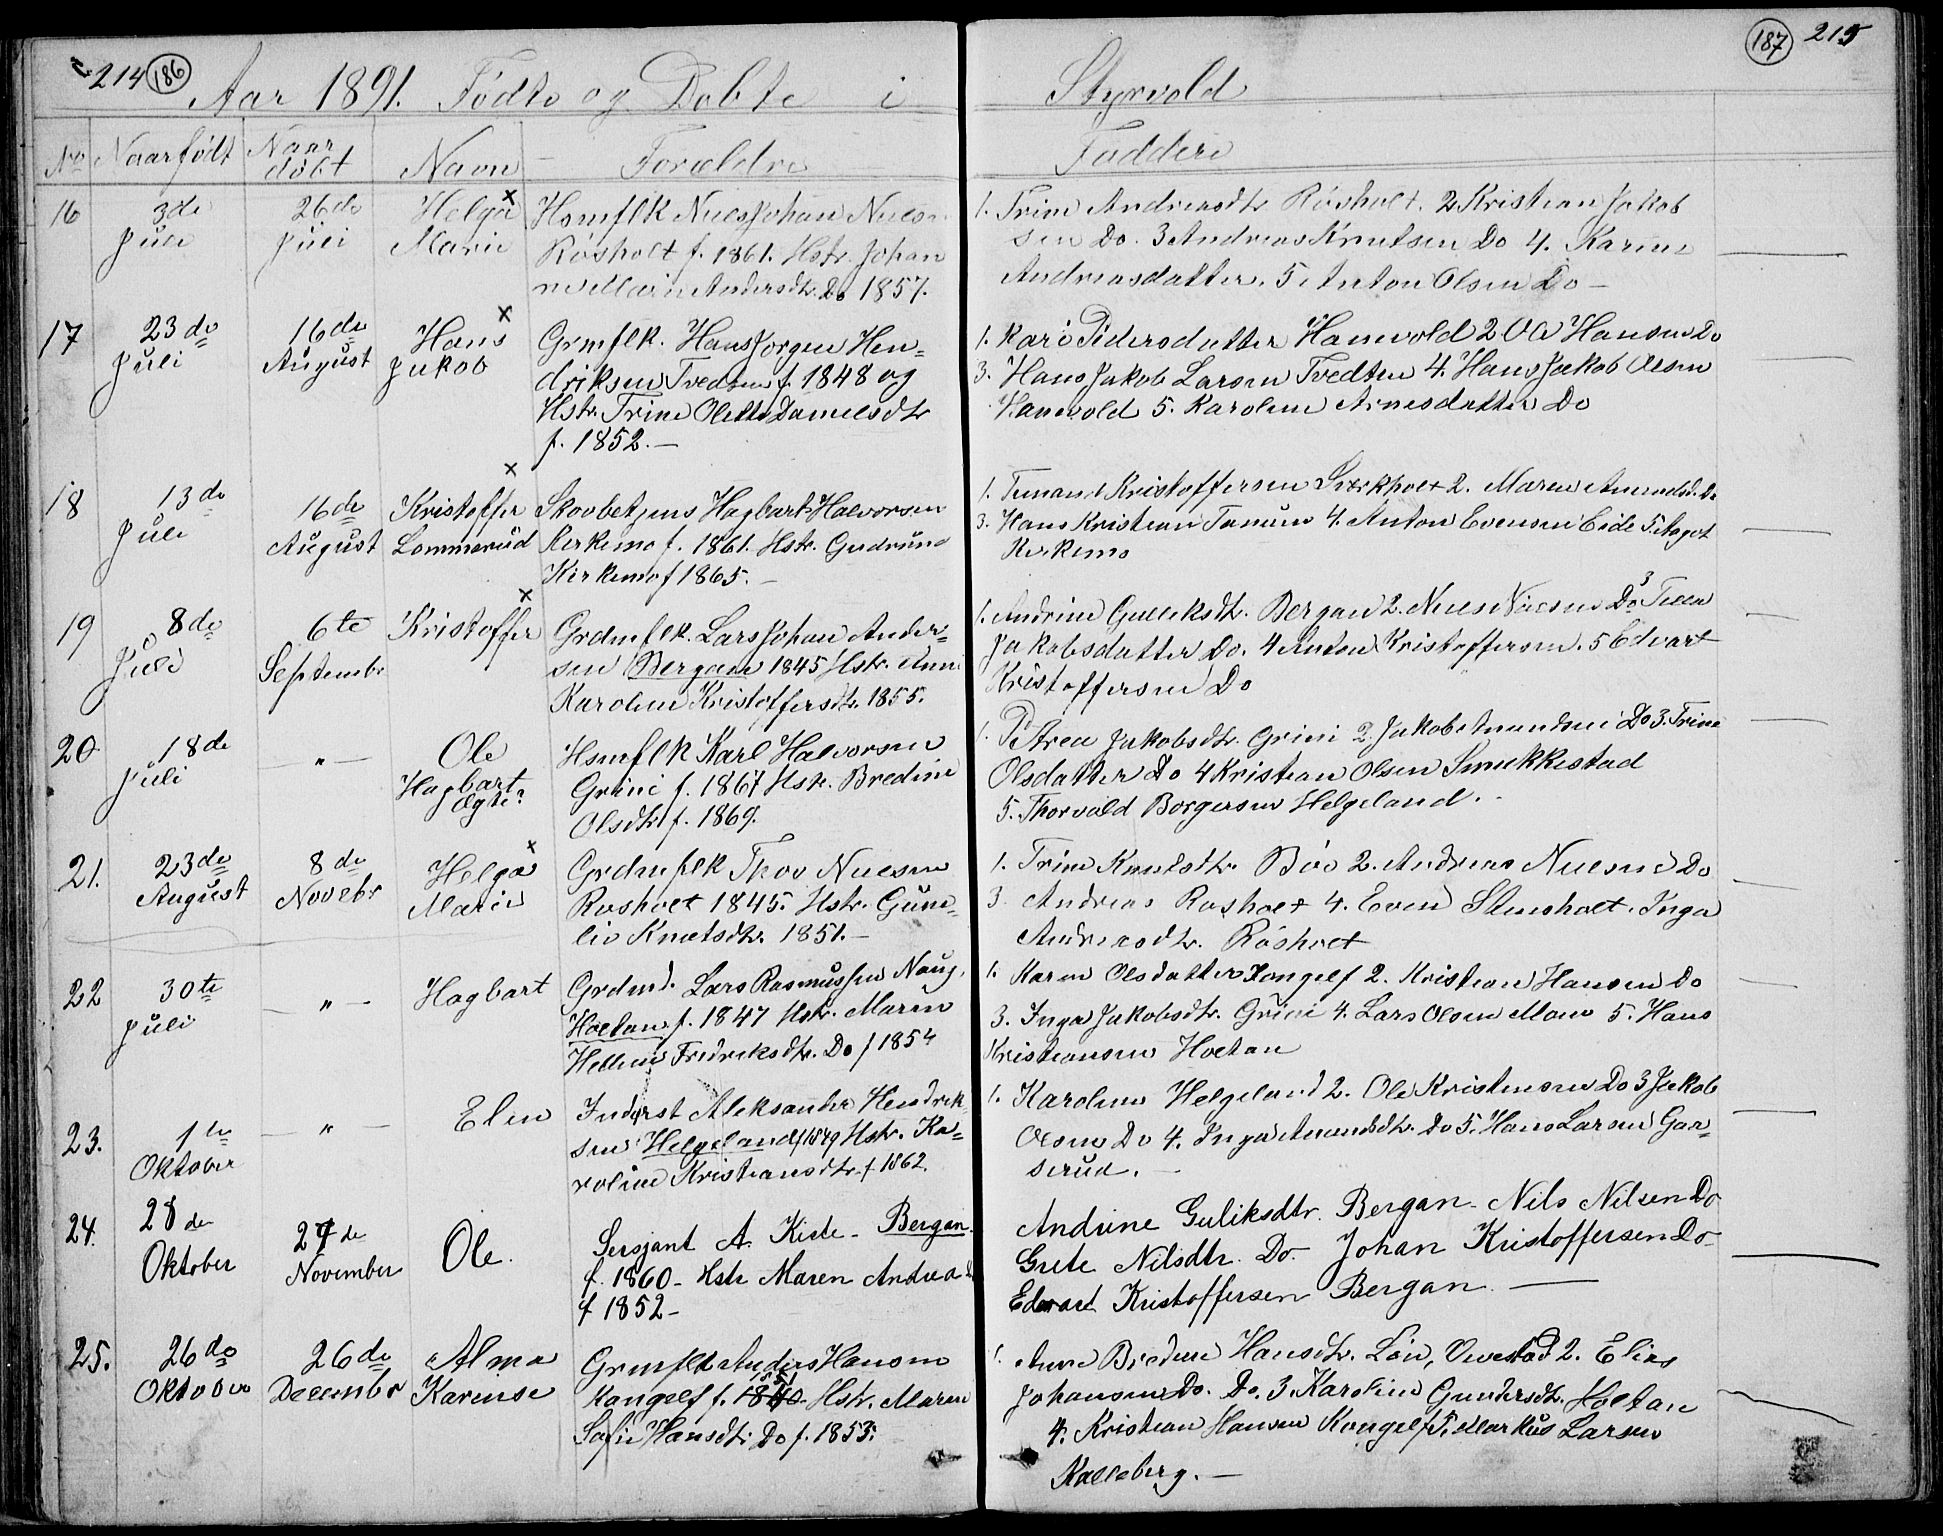 214 (186)
Aar 1891. Fødte og Døbte i
No Naar født Naar døbt Navn Forældre
16 3de Juli 26de Juli Helga Marie Hsmflk Nils Johan Nilsen
Røsholt f. 1861. Hstr. Johan
ne Marie Andersdtr. Do 1857.
17 23de Juli 16de August Hans Jakob Grmflk. Hans Jorgen Hen=
driksen Tvedten f. 1848 og
Hstr. Trine Olette Danielsdtr
f. 1852.—
18 13de Juli 16de August Kristoffer Lommerud Skovbetjens Hagbart Halvorsen
Kirkemo f. 1861. Hstr. Gudrund
Kirkemo f 1865.—
19 8de Juli 6te Septembr Kristoffer Grdmflk. Lars Johan Ander=
sen Bergan 1845 Hstr. Anne
Karoline Kristoffersdtr. 1855.
20 18de Juli —"— Ole Hagbart Ægte: Hsmflk Karl Halvorsen
Grini f. 1867 Hstr. Bredine
Olsdtr f. 1869.
21. 23de August 8de Novebr Helga Marie Grdmflk Thov Nilsen
Rosholt 1845. Hstr. Gun=
liv Knutsdtr. 1851.—
22 30te Juli —"— Hagbart Grdmd. Lars Rasmussen Naug,
Holtan f. 1847 Hstr. Maren
Helline Fredriksdtr. Do f 1854
23. 1te Oktober —"— Elen Inderst Aleksander Hendrik
sen Helgeland f 1849 Hstr. Ka=
roline Kristiansdtr. f 1862.
24. 28de Oktober 27de November Ole. Sersjant A. Kiste - Bergan.
f. 1860 - Hstr Maren Andrea
f 1852 -
25. 26de Oktober 26de Decembr Alma Karense Grmflk Anders Hansen
1851
Kongelf f. 1840. Hstr. Maren
Sofie Hansdtr. Do f. 1853.
(187) 215
Styrvold
Faddere
1. Trine Andreasdtr Røsholt. 2 Kristian Jakob
sen Do. 3 Andreas Knutsen Do 4. Karine
Andreasdatter. 5 Anton Olsen Do —
1. Kari Pedersdatter Hanevold 2 Ole Hansen Do
3. Hans Jakob Larsen Tvedten 4. Hans Jakob Olsen
Hanevold 5. Karoline Arnesdatter Do
1. Kristoffersen 2. Maren Do
3. Hans Kristian 4. Anton Evensen Eide 5. Aaget
Kirkemo
1. Andrine Gulleksdtr. Bergan 2. Nils Nilsen Do 3 Tilla
Jakobsdatter Do. 4 Anton Kristoffersen. 5 Edvart
Kristoffersen Do
1. Petrea Jakobsdtr. Grini 2. Jakob Amundsen Do 3. Trine
Olsdatter Do 4 Kristian Olsen Smukkestad
5. Thorvald Borgersen Helgeland.
1. Trine Knutsdtr. Bøe 2. Andreas Nilsen Do
3. Andreas Rosholt 4. Even Stensholt. Inga
Andreasdtr. Røsholt
1. Karen Olsdatter Kongelf 2. Kristian Hansen Do
3. Inga Jakobsdtr. Grini 4. Lars Olsen Moen 5. Hans
Kristiansen Holtan
1. Karoline Helgeland 2. Ole Kristensen Do 3 Jakob
Olsen Do 4. Inga Amundsdtr. Do 5. Hans Larsen Gar=
serud.—
Andrine Guliksdtr. Bergan - Nils Nilsen Do
Grete Nilsdtr. Do - Johan Kristoffersen Do -
Edvart Kristoffersen Bergan.—
1. Anne Bredine Hansdtr. Løn, 2. Elias
Johansen Do. Do. 3. Karoline Gundersdtr. Holtan
4. Kristian Hansen Kongelf 5. Markus Larsen
Kalleberg.—